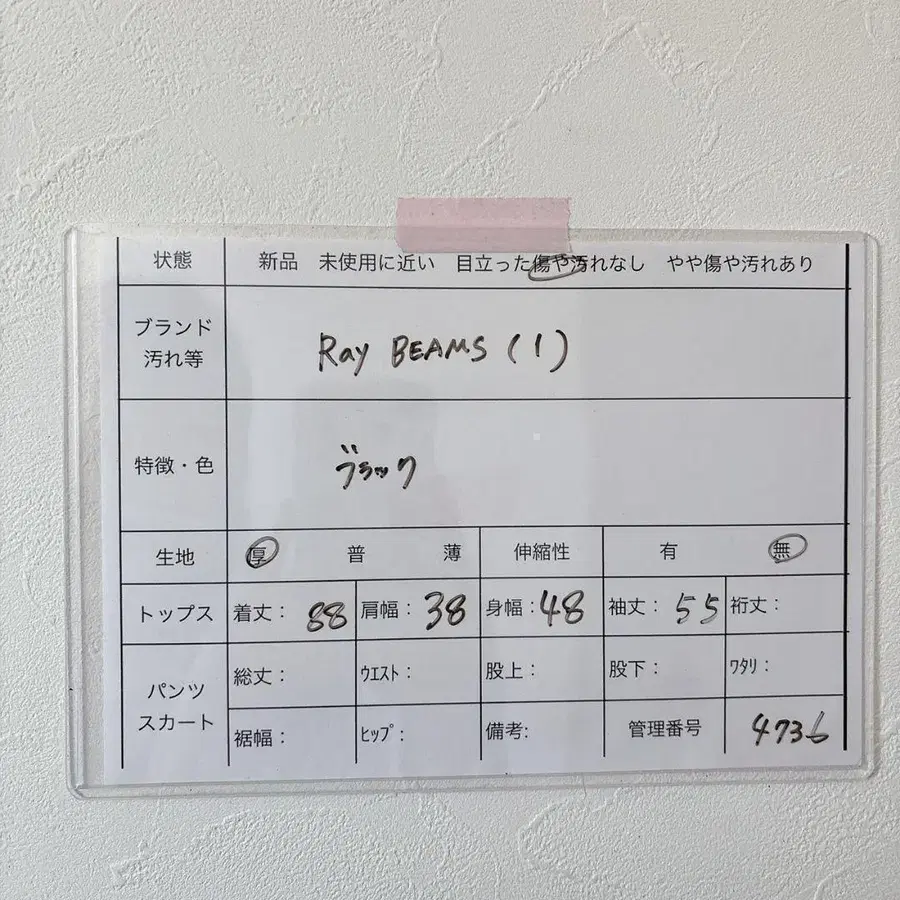 状態 新品 未使用に近い 目立った傷や汚れなし やや傷や汚れあり
ブランド
汚れ等
Ray BEAMS (1)
特徴・色 ブラック
生地 厚 普 薄 伸縮性 有 無
トップス 着丈: 88 肩幅: 38 身幅: 48 袖丈: 55 裄丈:
パンツ
スカート
総丈: ウエスト: 股上: 股下: ワタリ:
裾幅: ヒップ: 備考: 管理番号 4736